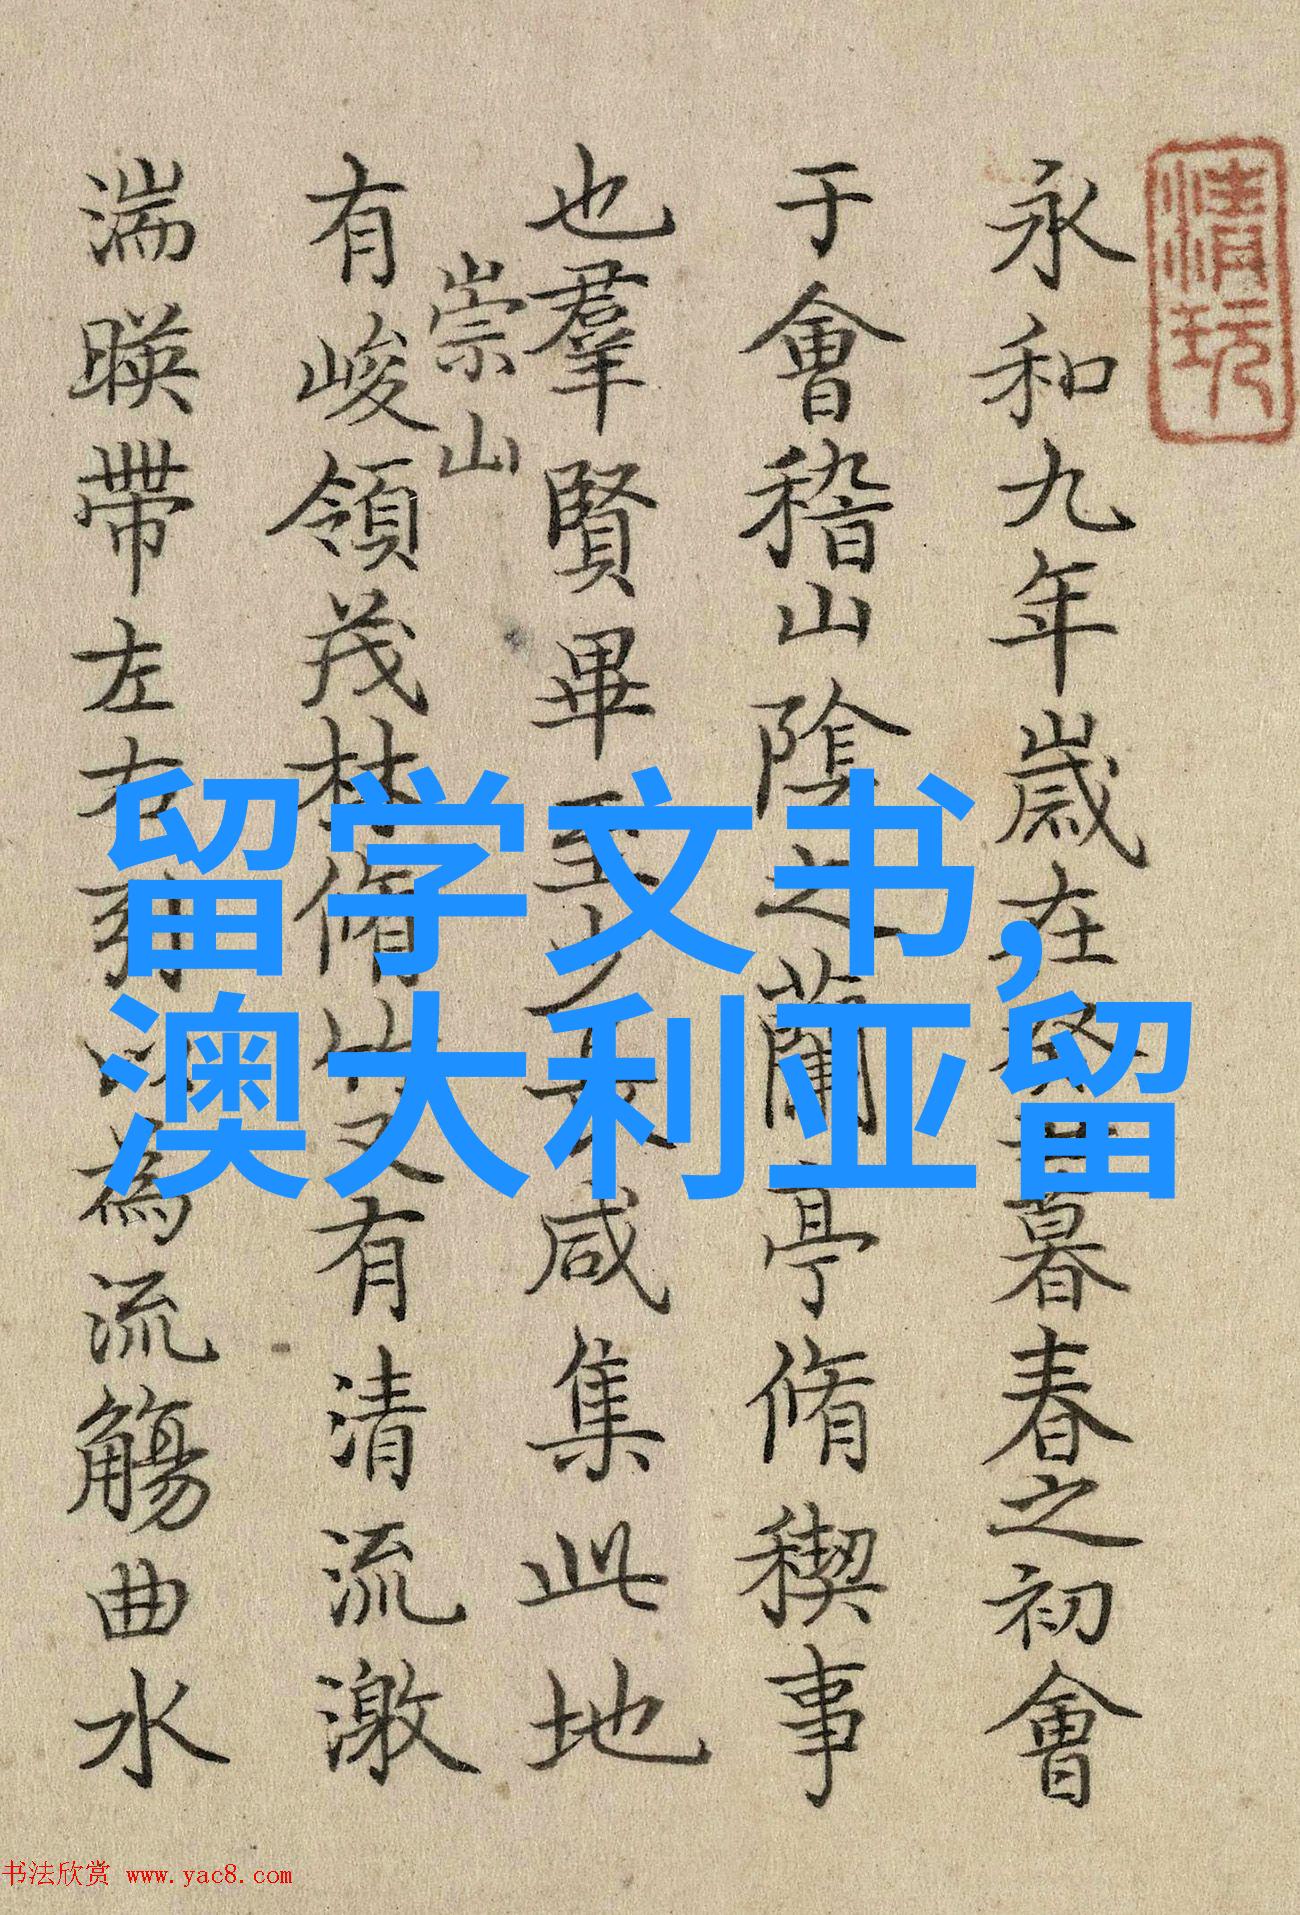 清玩
永和九年歲在癸丑暮春之初會
于會稽山陰之蘭亭脩稧事
也羣賢畢至少長咸集此地
崇山
有峻領茂林脩竹又有清流激
湍暎帶左右引以為流觴曲水
留学文书,
澳大利亚留
书法欣赏 www.yac8.com